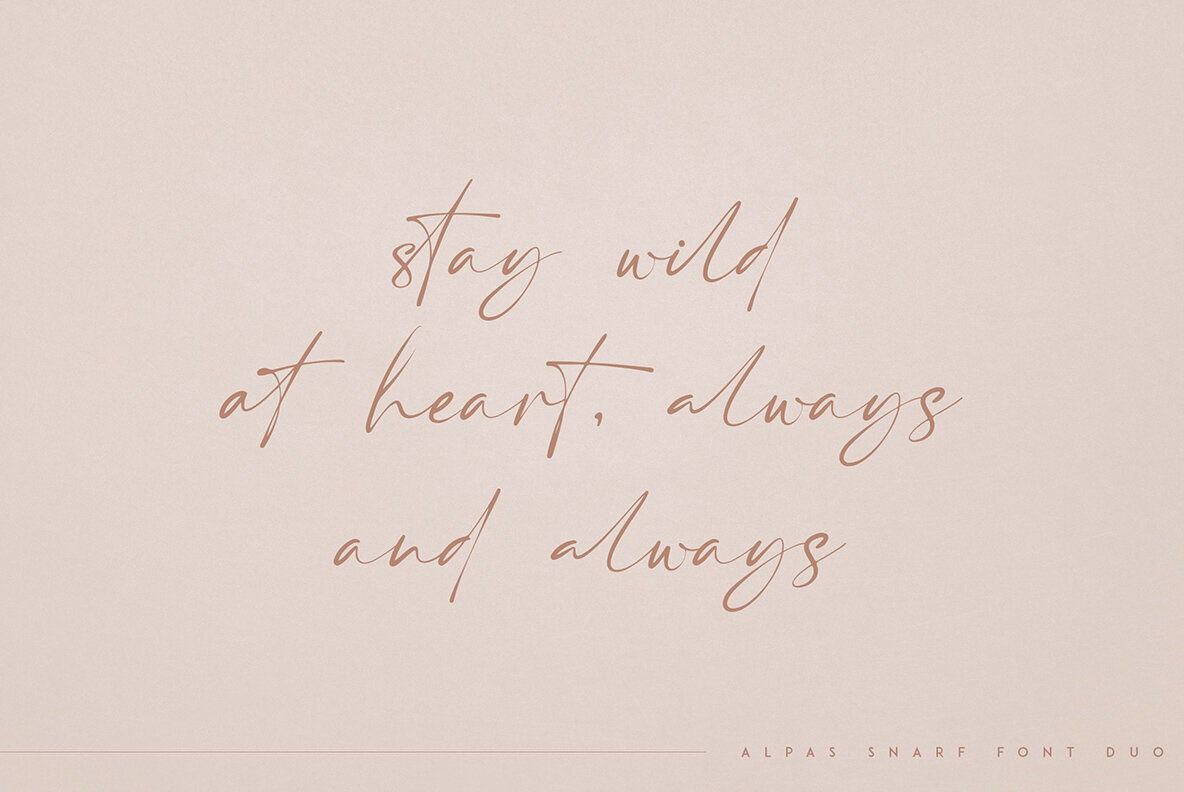 stay wild
at heart, always
and always
ALPAS SNARF FONT DUO